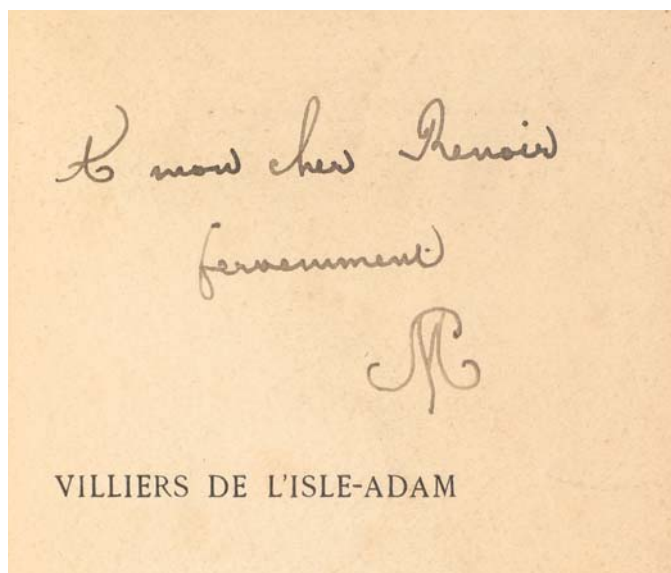 A mon cher Renoir
fervemment
SM
VILLIERS DE L'ISLE-ADAM